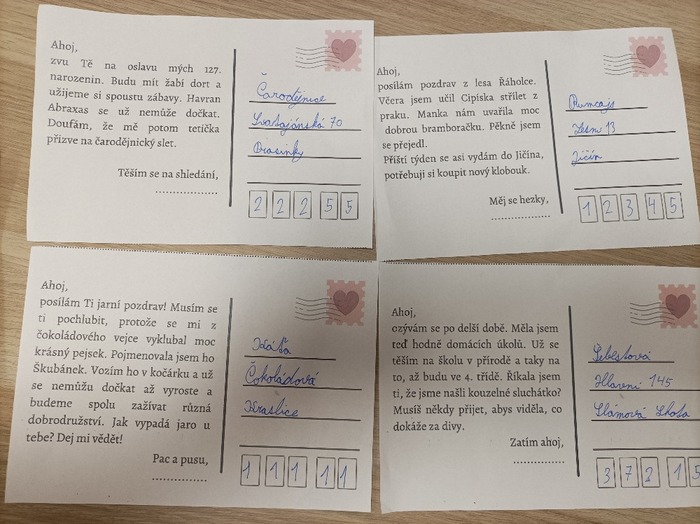 Ahoj,
zvu Tě na oslavu mých 127.
narozenin. Budu mít žabí dort a
užijeme si spoustu zábavy. Havran
Abraxas se už nemůže dočkat.
Doufám, že mě potom tetička
přizve na čarodějnický slet.
Těším se na shledání,
....................
Čarodějnice
Svatojánská 70
Brasinky
2 2 2 5 5
Ahoj,
posílám pozdrav z lesa Řáholce.
Včera jsem učil Cipíska střílet z
praku. Manka nám uvařila moc
dobrou bramboračku. Pěkně jsem
se přejedl.
Příští týden se asi vydám do Jičína,
potřebuji si koupit nový klobouk.
Měj se hezky,
....................
Rumcajs
Lesní 13
Jičín
1 2 3 4 5
Ahoj,
posílám Ti jarní pozdrav! Musím se
ti pochlubit, protože se mi z
čokoládového vejce vyklubal moc
krásný pejsek. Pojmenovala jsem ho
Škubánek. Vozím ho v kočárku a už
se nemůžu dočkat až vyroste a
budeme spolu zažívat různá
dobrodružství. Jak vypadá jaro u
tebe? Dej mi vědět!
Pac a pusu,
....................
Káťa
Čokoládová
Kraslice
1 1 1 1 1
Ahoj,
ozývám se po delší době. Měla jsem
teď hodně domácích úkolů. Už se
těším na školu v přírodě a taky na
to, až budu ve 4. třídě. Říkala jsem
ti, že jsme našli kouzelné sluchátko?
Musíš někdy přijet, abys viděla, co
dokáže za divy.
Zatím ahoj,
....................
Šebestová
Hlavní 145
Slámová Lhota
3 7 2 1 5